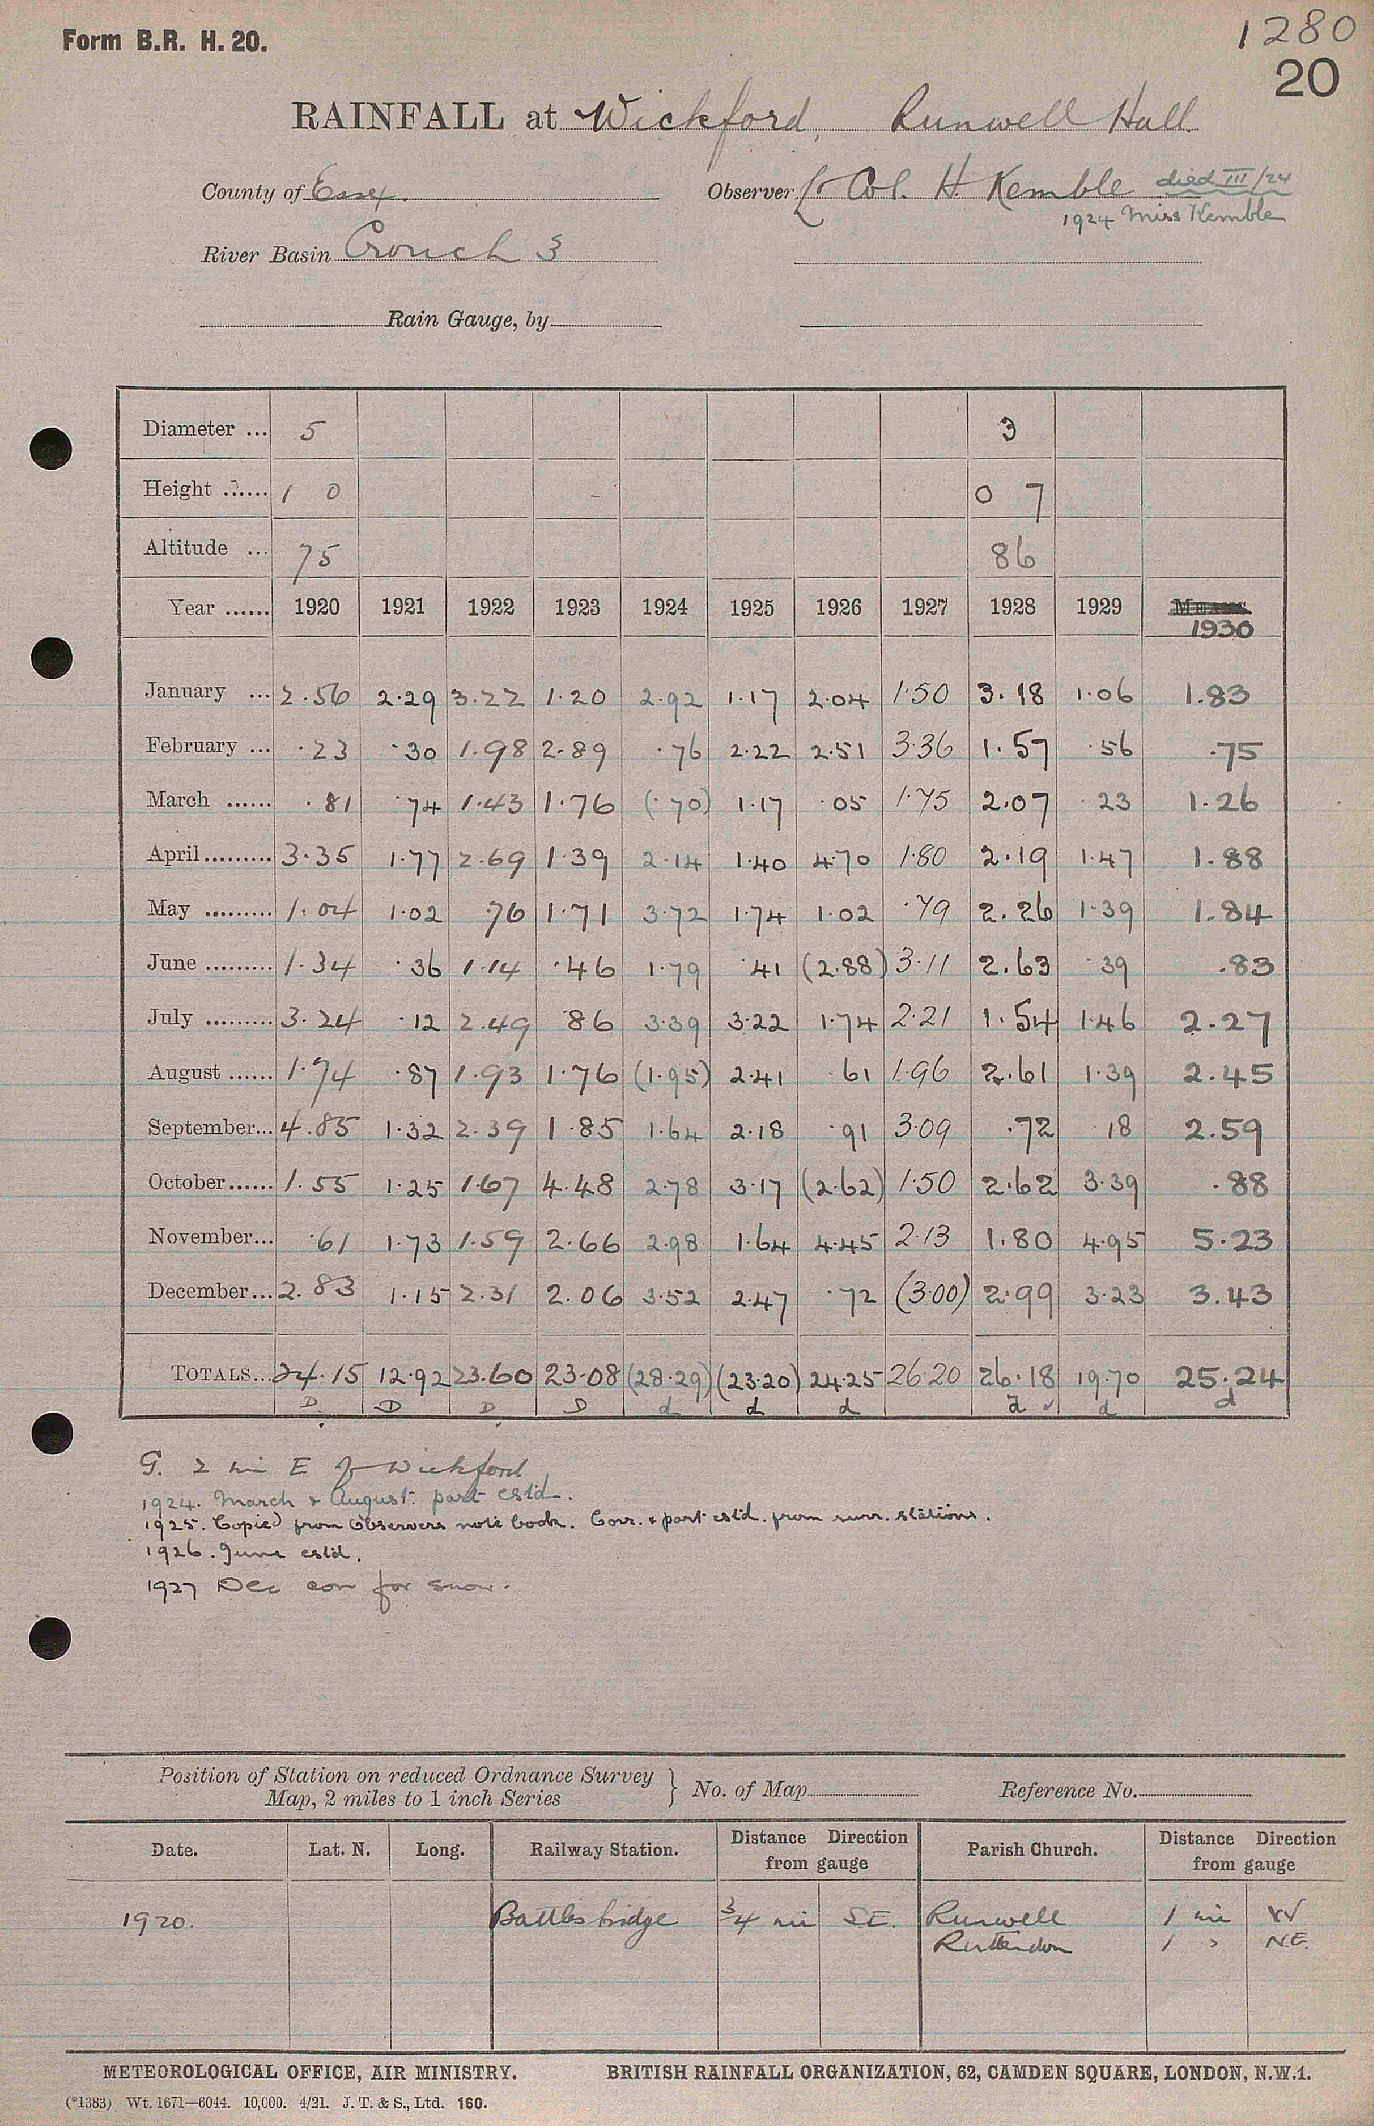 1280
Form B.R. H. 20.
20
RAINFALL at Wickford, Runwell Hall
County of Essex. Observer Lt Col. H. Kemble died III/24
1924 Miss Kemble
River Basin Crouch 3
Rain Gauge, by
Diameter ... 5 3
Height ...... 1 0 0 7
Altitude ... 75 86
Year ...... 1920 1921 1922 1923 1924 1925 1926 1927 1928 1929 Means
1930
January ... 2.56 2.29 3.22 1.20 2.92 1.17 2.04 1.50 3.18 1.06 1.83
February ... .23 .30 1.98 2.89 .76 2.22 2.51 3.36 1.57 .56 .75
March ...... .81 .74 1.43 1.76 (.70) 1.17 .05 1.75 2.07 .23 1.26
April ......... 3.35 1.77 2.69 1.39 2.14 1.40 4.70 1.80 2.19 1.47 1.88
May ......... 1.04 1.02 .76 1.71 3.72 1.74 1.02 .79 2.26 1.39 1.84
June ......... 1.34 .36 1.14 .46 1.79 .41 (2.88) 3.11 2.63 .39 .83
July ......... 3.24 .12 2.49 .86 3.39 3.22 1.74 2.21 1.54 1.46 2.27
August ...... 1.74 .87 1.93 1.76 (1.95) 2.41 .61 1.96 2.61 1.39 2.45
September... 4.85 1.32 2.39 1.85 1.64 2.18 .91 3.09 .72 .18 2.59
October...... 1.55 1.25 1.67 4.48 2.78 3.17 (2.62) 1.50 2.62 3.39 .88
November... .61 1.73 1.59 2.66 2.98 1.64 4.45 2.13 1.80 4.95 5.23
December... 2.83 1.15 2.31 2.06 3.52 2.47 .72 (3.00) 2.99 3.23 3.43
TOTALS... 24.15 12.92 23.60 23.08 (28.29) (23.20) 24.25 26.20 26.18 19.70 25.24
D D D D d d d d ✓ d d
G. 2 mi E of Wickford
1924. March & August. part estd.
1925. Copied from Observers note book. Corr. & part estd. from surr. stations.
1926. June estd.
1927 Dec corr for snow.
Position of Station on reduced Ordnance Survey
Map, 2 miles to 1 inch Series } No. of Map Reference No.
Date. Lat. N. Long. Railway Station. Distance Direction from gauge Parish Church. Distance Direction from gauge
1920. Battlesbridge 3/4 mi S.E. Runwell 1 mi W
Rettendon 1 " N.E.
METEOROLOGICAL OFFICE, AIR MINISTRY. BRITISH RAINFALL ORGANIZATION, 62, CAMDEN SQUARE, LONDON, N.W.1.
(*1383) Wt. 1671—6044. 10,000. 4/21. J. T. & S., Ltd. 160.